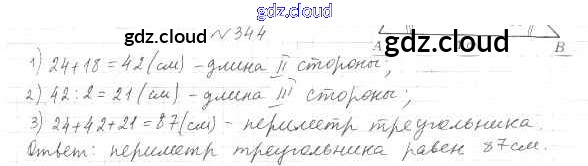 gdz.cloud
№344
gdz.cloud
gdz.cloud
A B
1) 24+18=42(см) - длина II стороны;
2) 42:2=21(см) - длина III стороны;
3) 24+42+21=87(см) - периметр треугольника.
Ответ: периметр треугольника равен 87см.